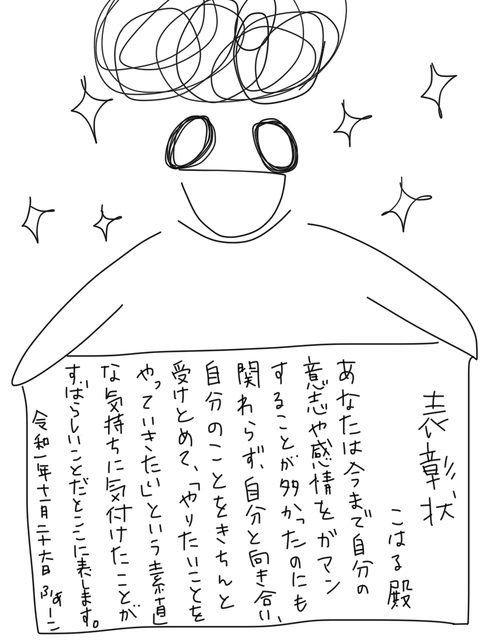 表彰状
こはる殿
あなたは今まで自分の
意志や感情をガマン
することが多かったのにも
関わらず、自分と向き合い、
自分のことをきちんと
受けとめて、「やりたいことを
やっていきたい」という素直
な気持ちに気付けたことが
すばらしいことだとここに表します。
令和一年十一月二十六日